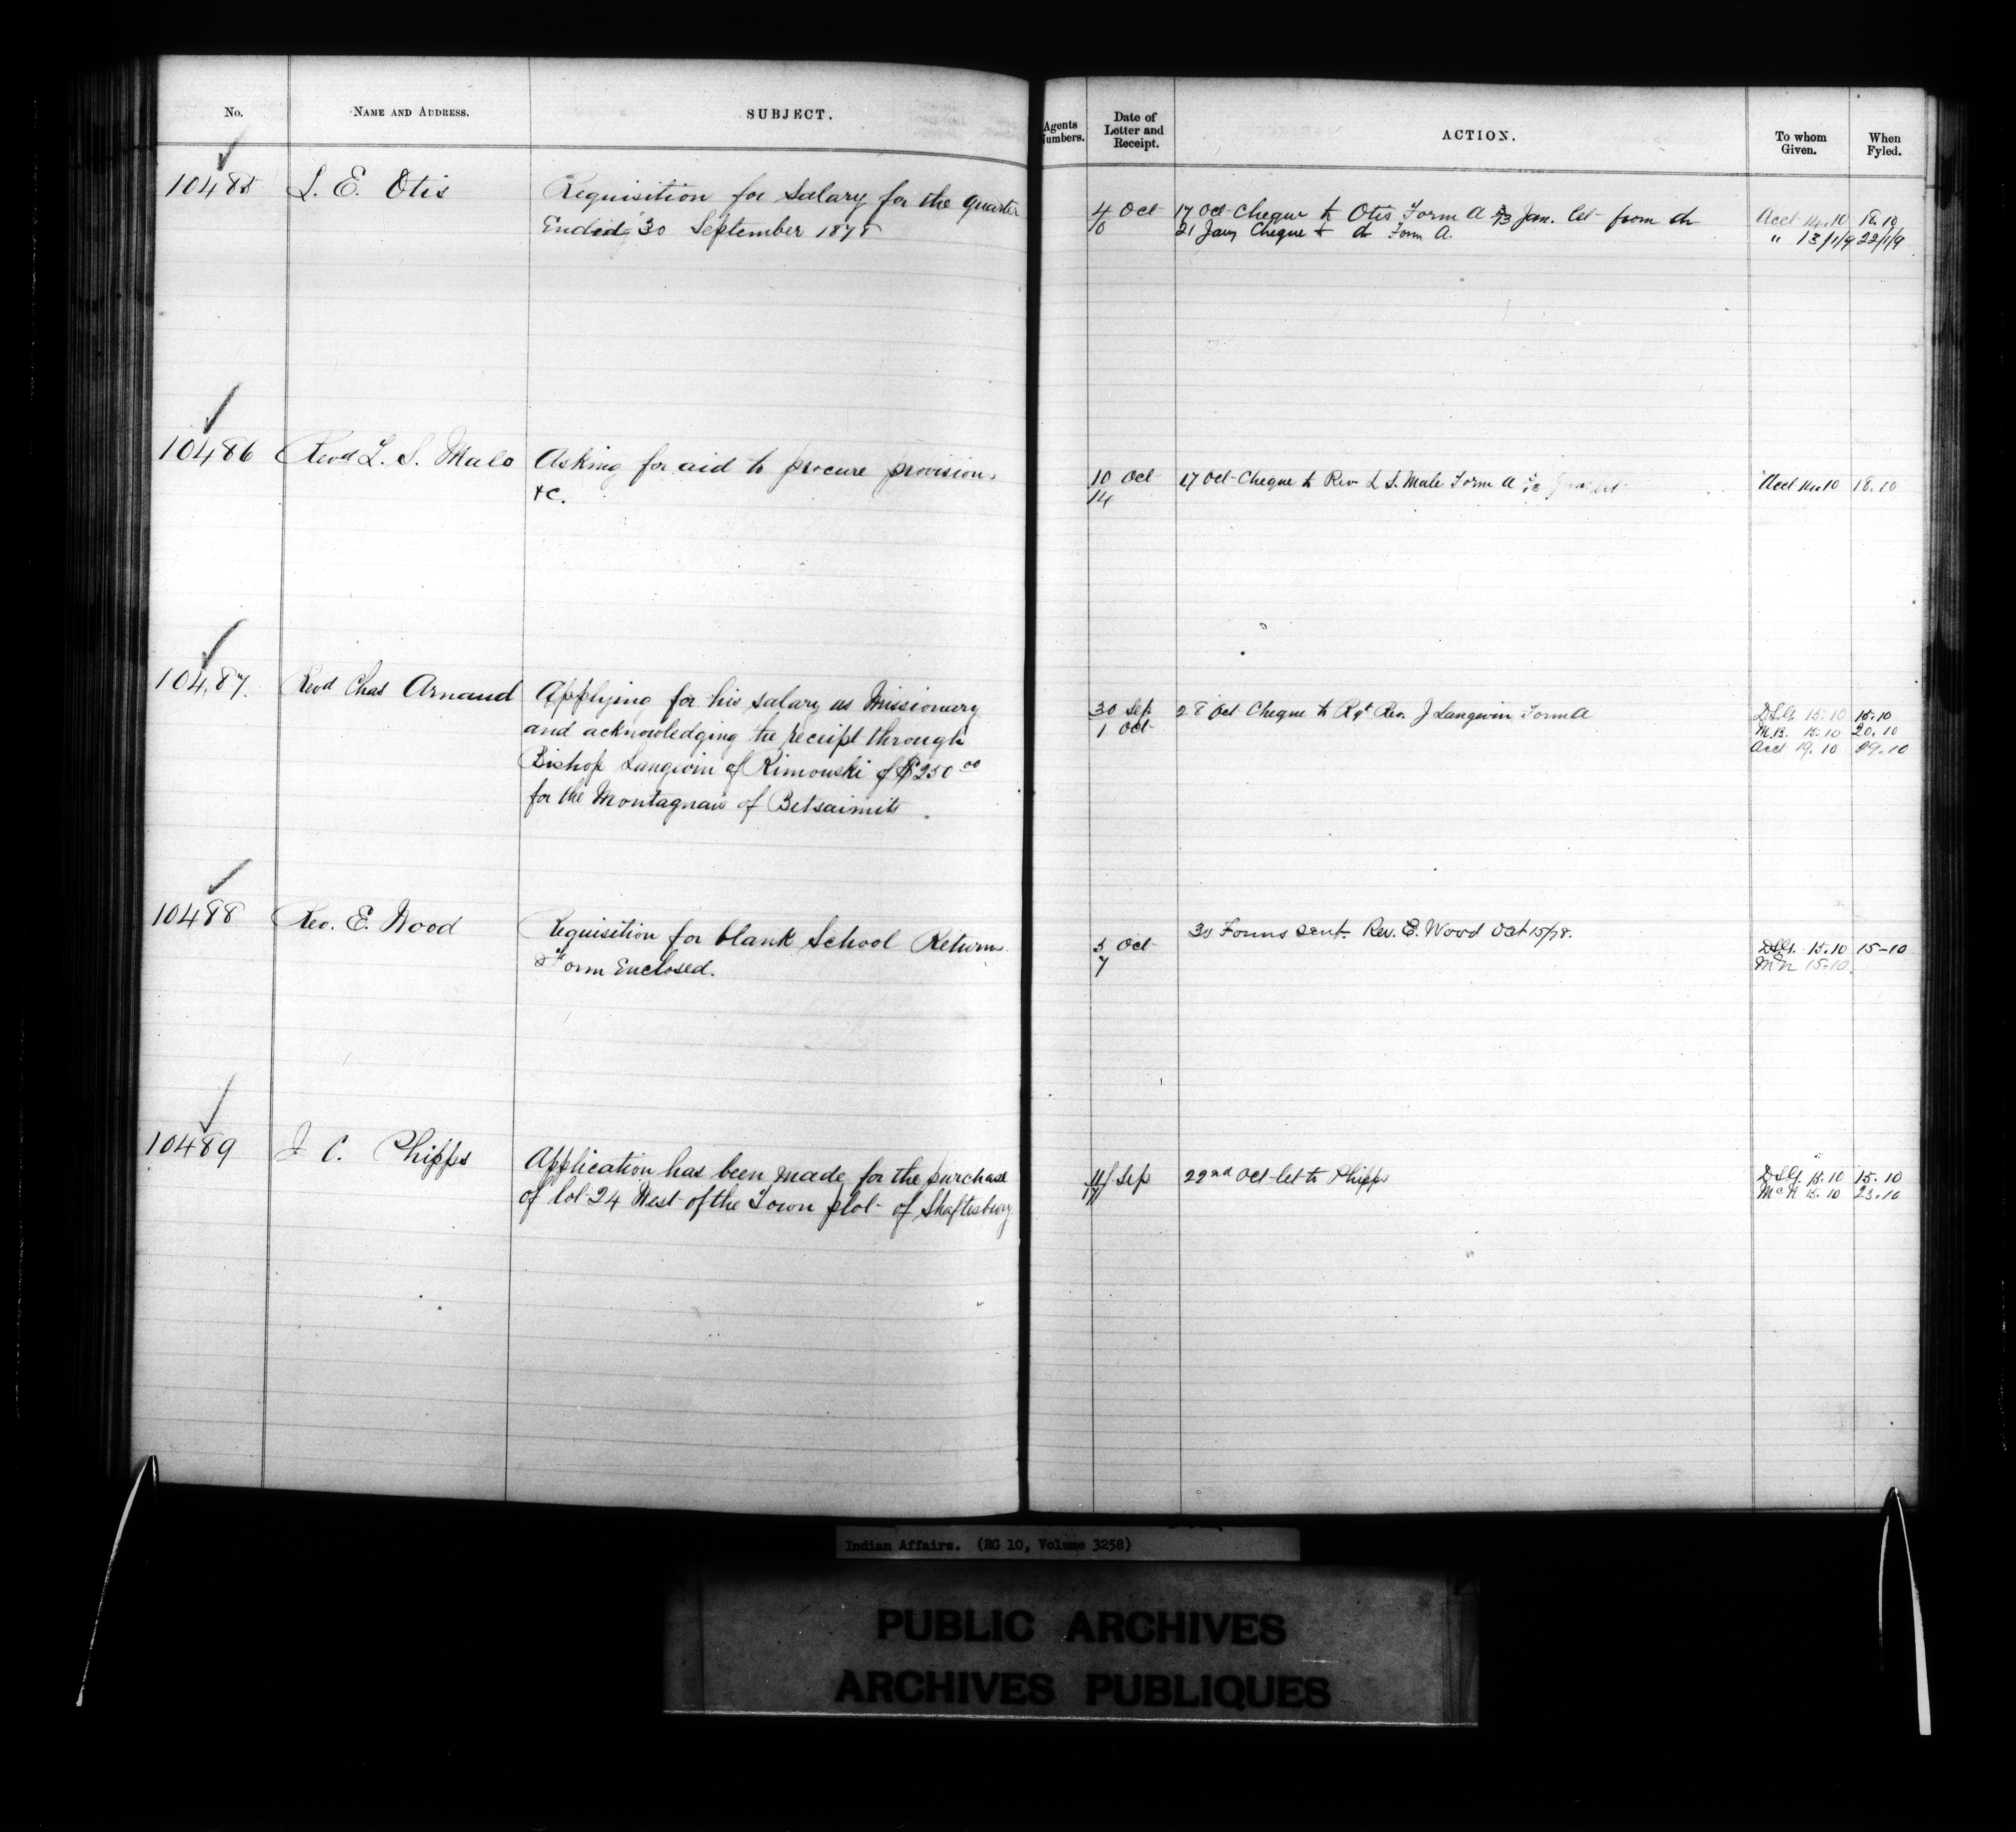 No.
NAME AND ADDRESS.
SUBJECT.
10485
L. E. Otis
Requisition for Salary for the quarter
Ending 30 September 1878
10486
Revd L. S. Malo
Asking for aid to procure provisions
&c.
10487.
Revd Chas Arnaud
Applying for his salary as Missionary
and acknowledging the receipt through
Bishop Langevin of Rimouski of $250 00
for the Montagnais of Betsiamits
10488
Rev. E. Wood
Requisition for blank School Returns.
Form Enclosed.
10489
J C. Phipps
Application has been made for the purchase
of lot 24 West of the Town plot of Shaftesbury
Agents Numbers.
Date of Letter and Receipt.
ACTION.
To whom Given.
When Fyled.
4 Oct 17 Oct Cheque to Otis Form A Jan. let from do Acct 14.10 18.10
10 21 Jany Cheque to do Form A. " 13/1/9 22/1/9
10 Oct 17 Oct Cheque to Rev L S. Malo Form A Acct 14.10 18.10
14
30 Sep 28 Oct Cheque to Rgt Rev. J Langevin Form A D.S.G. 15.10 15.10
1 Oct M.B. 15.10 20.10
Acct 19.10 29.10
30 Forms sent Rev. E. Wood Oct 15/78.
5 Oct D.S.G. 15.10 15-10
7 McN 15.10.
11/ Sep 22nd Oct let to Phipps D.S.G. 15.10 15.10
17/ McN 15.10 23.10
Indian Affairs. (RG 10, Volume 3258)
PUBLIC ARCHIVES
ARCHIVES PUBLIQUES